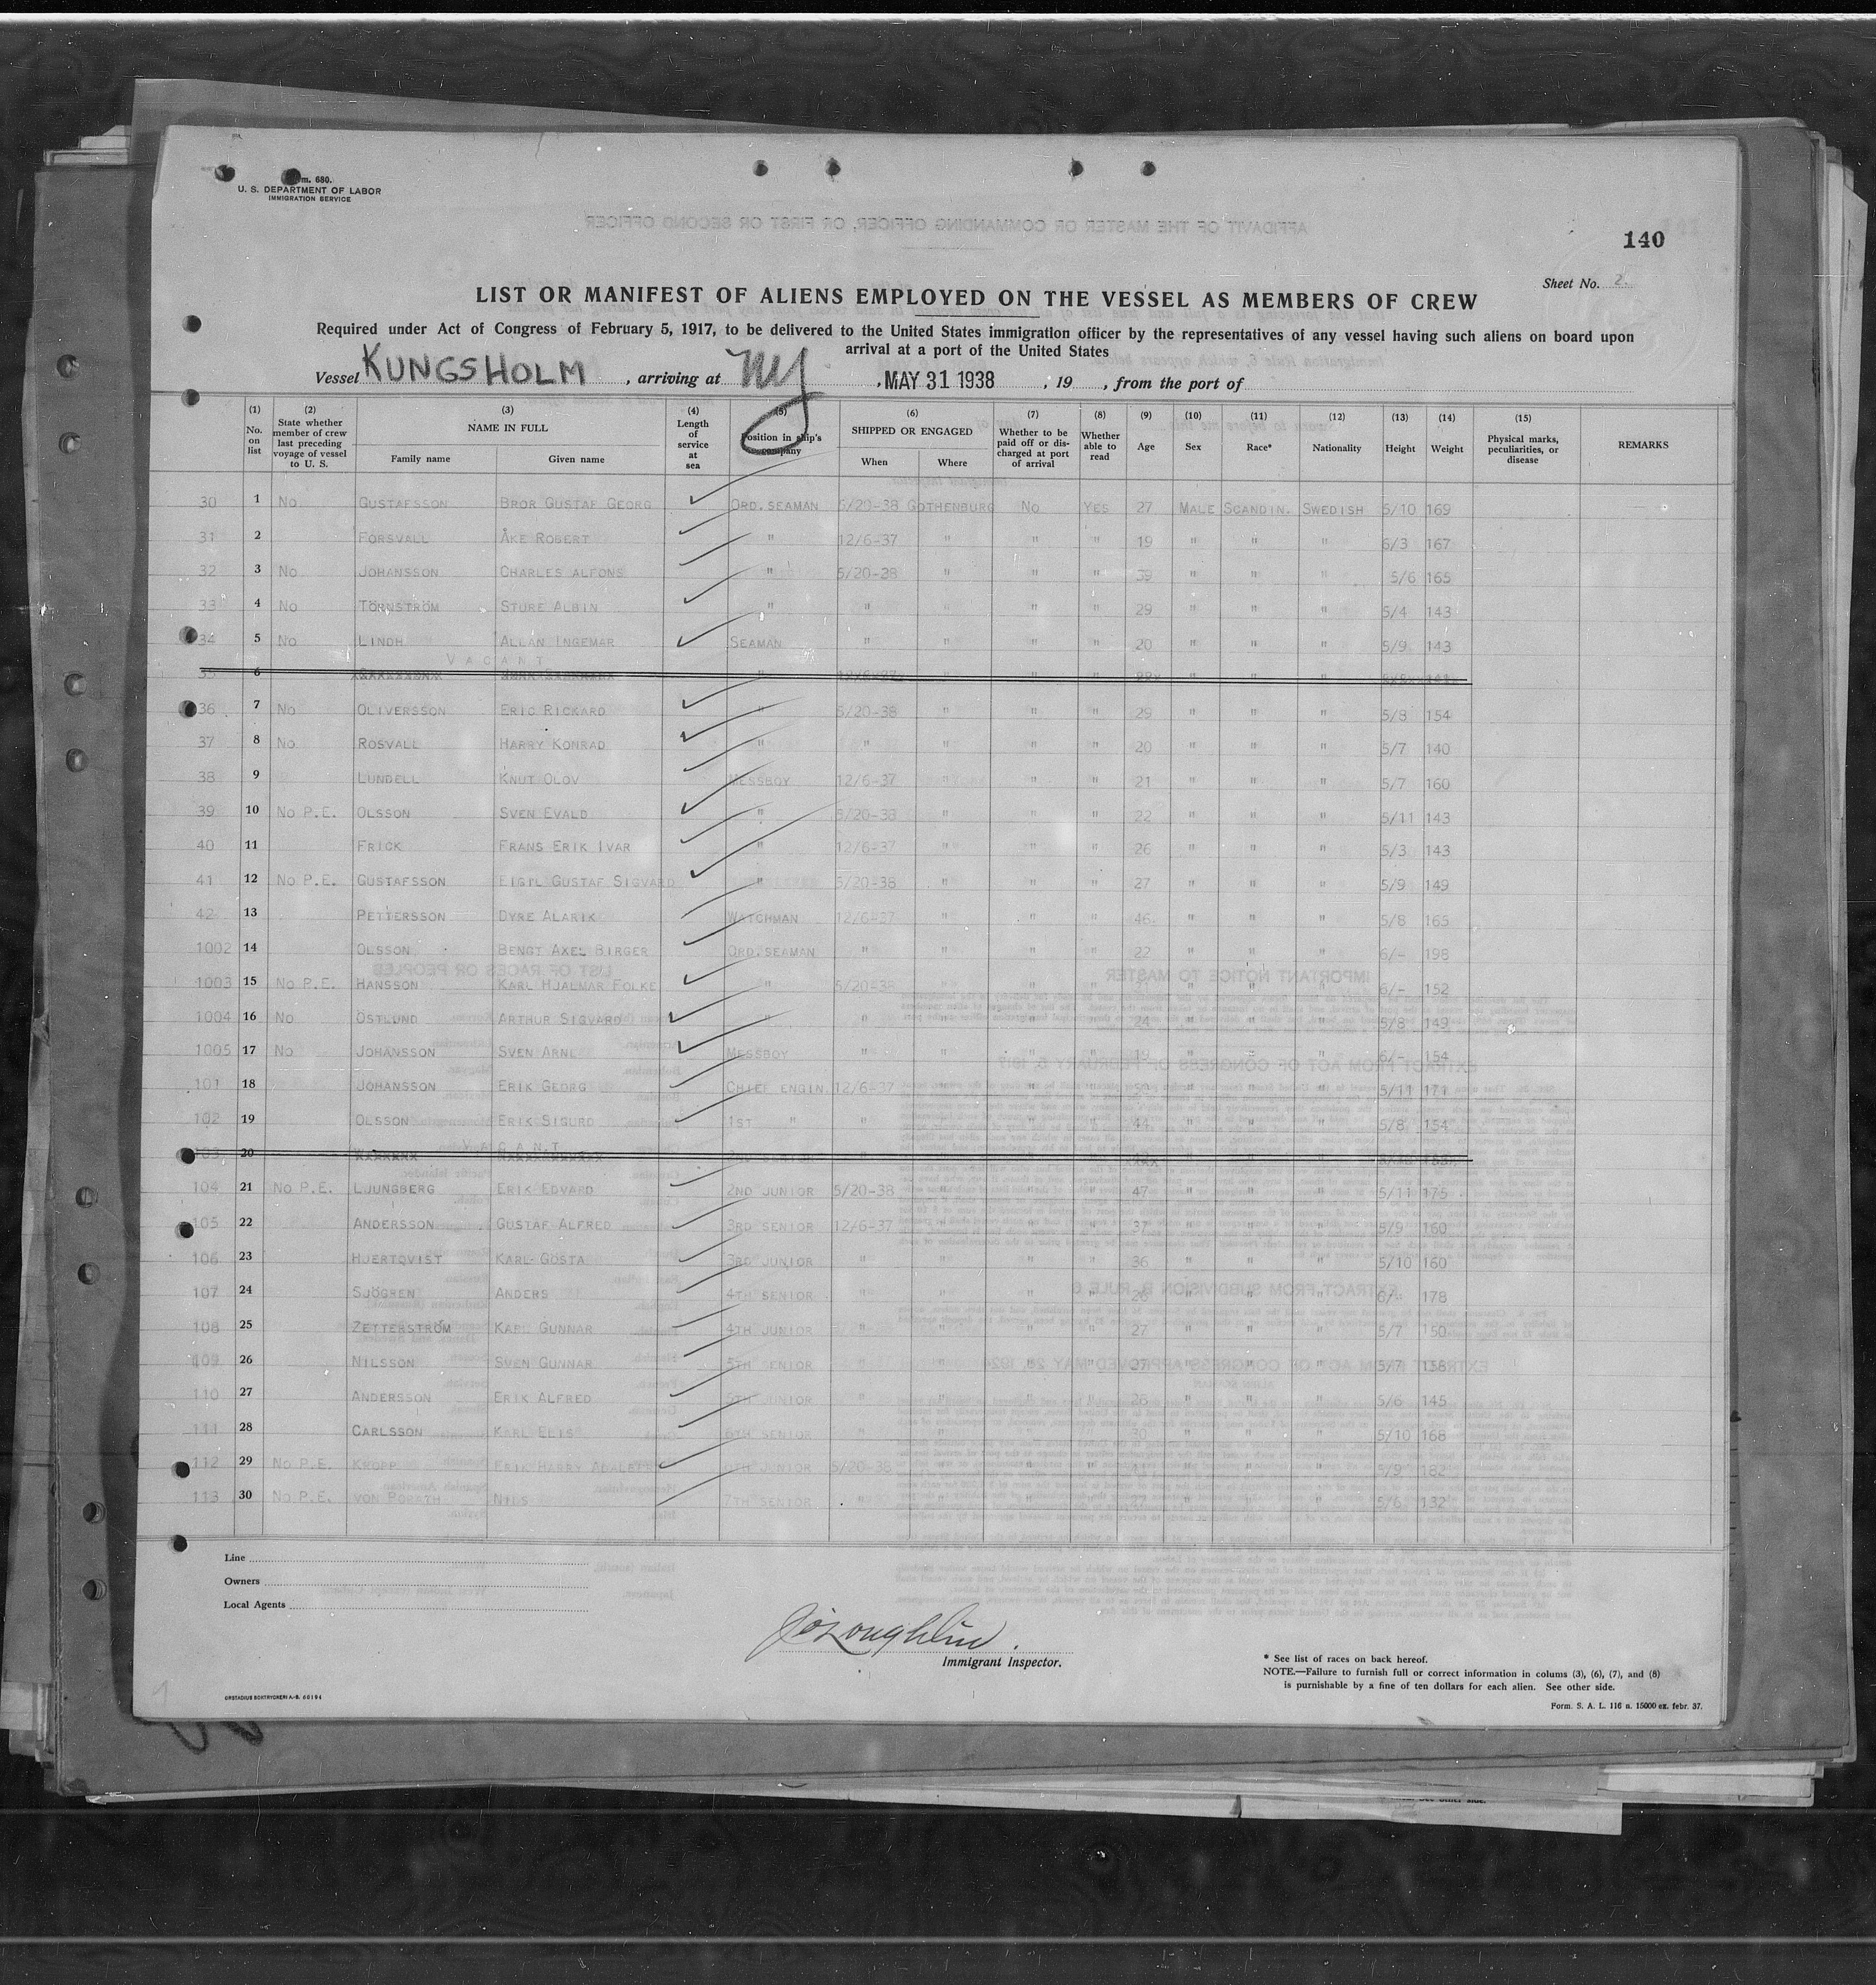 Form. 680.
U. S. DEPARTMENT OF LABOR
IMMIGRATION SERVICE
140
Sheet No. 2
LIST OR MANIFEST OF ALIENS EMPLOYED ON THE VESSEL AS MEMBERS OF CREW
Required under Act of Congress of February 5, 1917, to be delivered to the United States immigration officer by the representatives of any vessel having such aliens on board upon
arrival at a port of the United States
Vessel KUNGSHOLM, arriving at NY, MAY 31 1938, 19, from the port of
(1) No. on list (2) State whether member of crew last preceding voyage of vessel to U. S. (3) NAME IN FULL Family name Given name (4) Length of service at sea (5) Position in ship's company (6) SHIPPED OR ENGAGED When Where (7) Whether to be paid off or discharged at port of arrival (8) Whether able to read (9) Age (10) Sex (11) Race* (12) Nationality (13) Height (14) Weight (15) Physical marks, peculiarities, or disease REMARKS
30 1 No GUSTAFSSON BROR GUSTAF GEORG ORD. SEAMAN 5/20-38 GOTHENBURG No YES 27 MALE SCANDIN. SWEDISH 5/10 169
31 2 FORSVALL ÅKE ROBERT " 12/6-37 " " " 19 " " " 6/3 167
32 3 No JOHANSSON CHARLES ALFONS " 5/20-28 " " " 39 " " " 5/6 165
33 4 No TÖRNSTRÖM STURE ALBIN " " " " " 29 " " " 5/4 143
34 5 No LINDH ALLAN INGEMAR SEAMAN " " " " 20 " " " 5/9 143
VACANT
35 6 " " " " " " "
36 7 No OLIVERSSON ERIC RICKARD " 5/20-38 " " " 29 " " " 5/8 154
37 8 No ROSVALL HARRY KONRAD " " " " " 20 " " " 5/7 140
38 9 LUNDELL KNUT OLOV MESSBOY 12/6-37 " " " 21 " " " 5/7 160
39 10 No P.E. OLSSON SVEN EVALD " 5/20-38 " " " 22 " " " 5/11 143
40 11 FRICK FRANS ERIK IVAR " 12/6-37 " " " 26 " " " 5/3 143
41 12 No P.E. GUSTAFSSON EIGIL GUSTAF SIGVARD " 5/20-38 " " " 27 " " " 5/9 149
42 13 PETTERSSON DYRE ALARIK WATCHMAN 12/6-37 " " " 46 " " " 5/8 165
1002 14 OLSSON BENGT AXEL BIRGER ORD. SEAMAN " " " " 22 " " " 6/- 198
1003 15 No P.E. HANSSON KARL HJALMAR FOLKE " 5/20-38 " " " " " " 6/- 152
1004 16 No ÖSTLUND ARTHUR SIGVARD " " " " " 24 " " " 5/8 149
1005 17 No JOHANSSON SVEN ARNE MESSBOY " " " " 19 " " " 6/- 154
101 18 JOHANSSON ERIK GEORG CHIEF ENGIN. 12/6-37 " " " " " " 5/11 171
102 19 OLSSON ERIK SIGURD 1ST " " " " " 44 " " " 5/8 154
VACANT
103 20
104 21 No P.E. LJUNGBERG ERIK EDVARD 2ND JUNIOR 5/20-38 " " " 47 " " " 5/11 175
105 22 ANDERSSON GUSTAF ALFRED 3RD SENIOR 12/6-37 " " " 37 " " " 5/9 160
106 23 HJERTQVIST KARL GÖSTA 3RD JUNIOR " " " " 36 " " " 5/10 160
107 24 SJÖGREN ANDERS 4TH SENIOR " " " " 26 " " " 6/- 178
108 25 ZETTERSTRÖM KARL GUNNAR 4TH JUNIOR " " " " 27 " " " 5/7 150
109 26 NILSSON SVEN GUNNAR 5TH SENIOR " " " " 27 " " " 5/7 158
110 27 ANDERSSON ERIK ALFRED 5TH JUNIOR " " " " 26 " " " 5/6 145
111 28 CARLSSON KARL ELIS 6TH SENIOR " " " " 30 " " " 5/10 168
112 29 No P.E. KROPP ERIK HARRY ADALBERT 6TH JUNIOR 5/20-38 " " " " " " 5/9 182
113 30 No P.E. VON PORATH NILS 7TH SENIOR " " " " 27 " " " 5/6 132
Line
Owners
Local Agents
Immigrant Inspector.
* See list of races on back hereof.
NOTE.—Failure to furnish full or correct information in colums (3), (6), (7), and (8)
is punishable by a fine of ten dollars for each alien. See other side.
ORSTADIUS BOKTRYCKERI A.-B. 66194
Form. S. A. L. 116 a. 15000 ex. febr. 37.